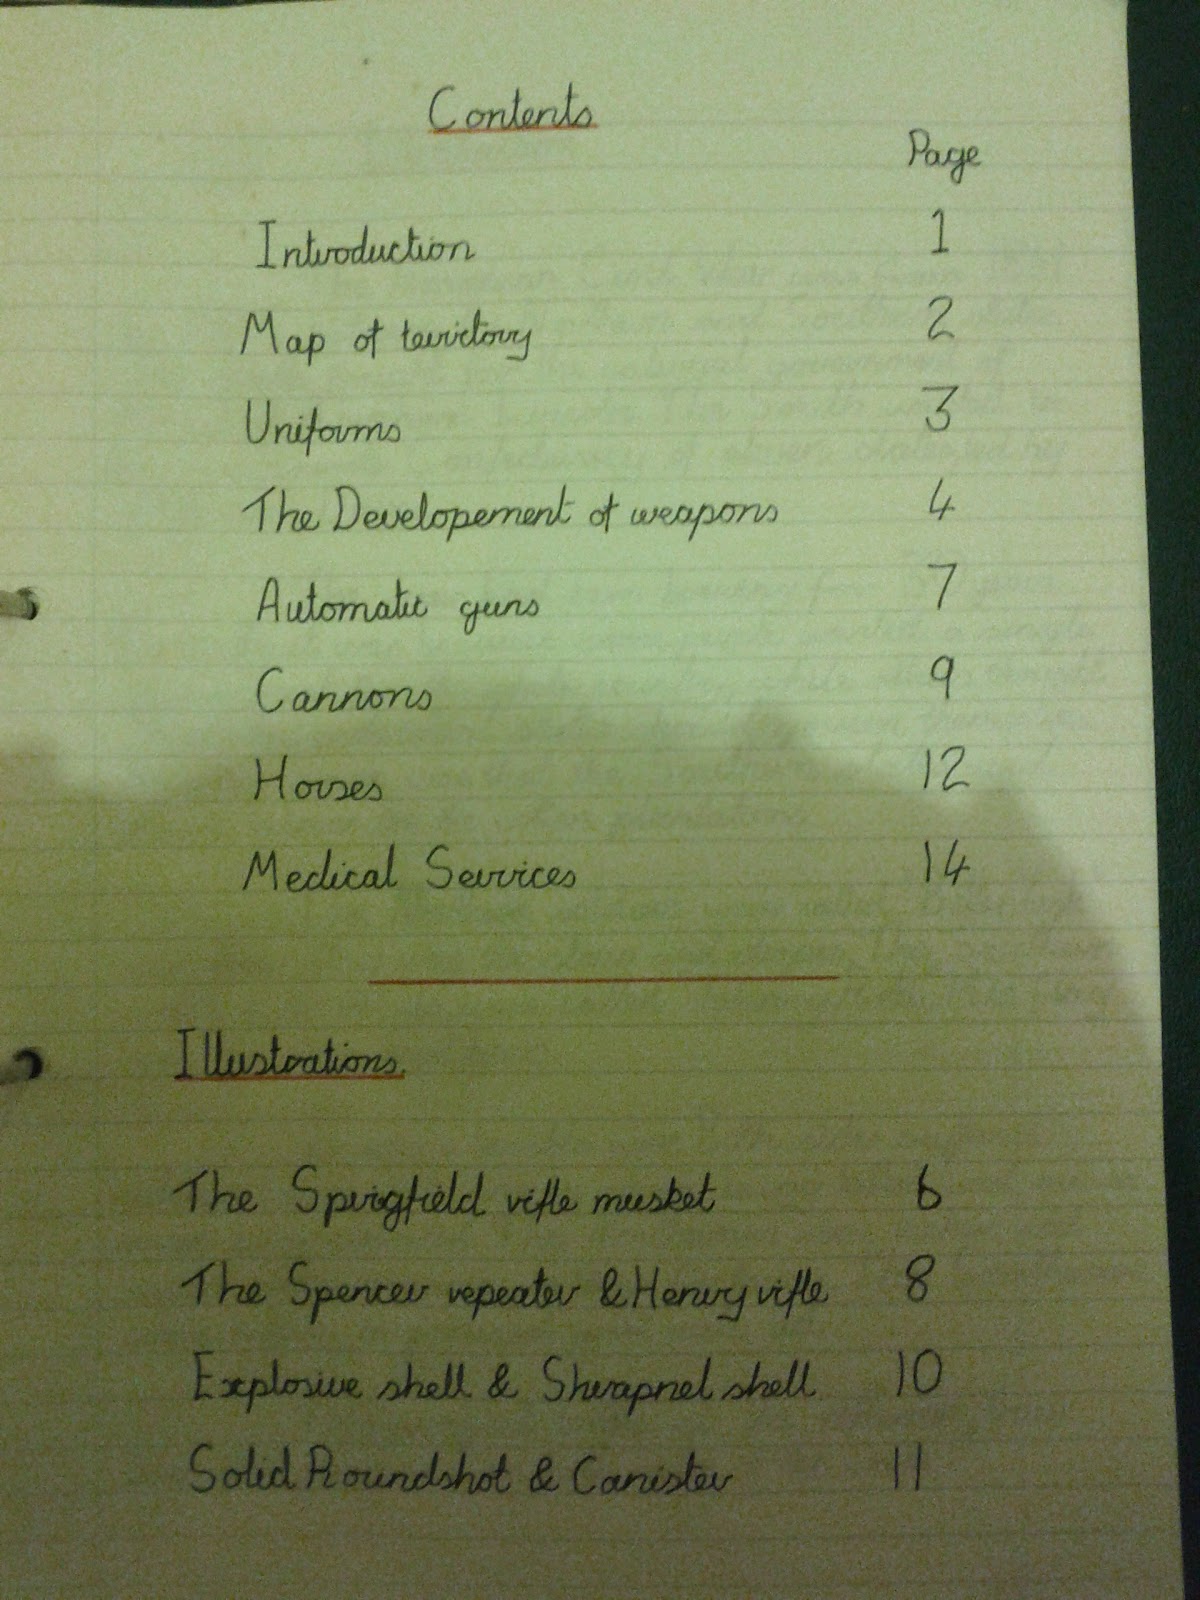 Contents
Page
Introduction 1
Map of territory 2
Uniforms 3
The Developement of weapons 4
Automatic guns 7
Cannons 9
Horses 12
Medical Services 14
Illustrations.
The Springfield rifle musket 6
The Spencer repeater & Henry rifle 8
Explosive shell & Shrapnel shell 10
Solid Roundshot & Canister 11